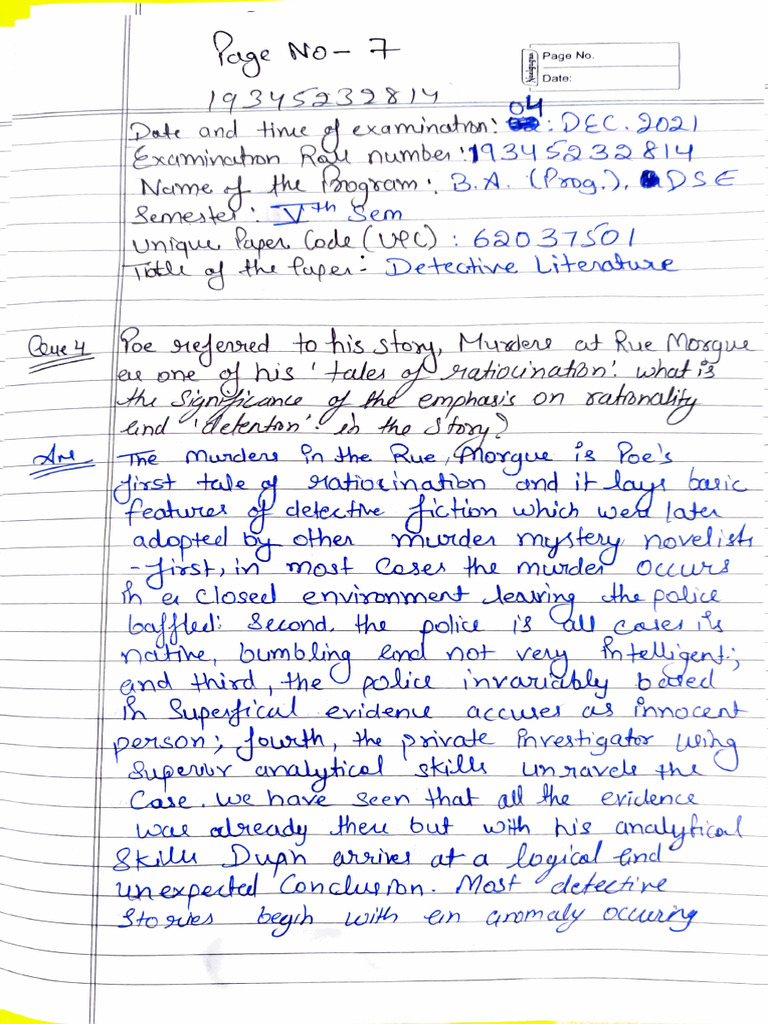 Page No - 7
Navgagan
Page No.
Date:
19345232814
04
Date and time of examination: : DEC. 2021
Examination Roll number: 19345232814
Name of the Program: B.A. (Prog.), DSE
Semester: Vth Sem
Unique Paper Code (UPC) : 62037501
Title of the Paper:- Detective Literature
Que 4 Poe referred to his story, Murders at Rue Morgue
as one of his 'tales of ratiocination'. what is
the significance of the emphasis on rationality
and 'detention' in the story?
Ans The murders in the Rue, Morgue is Poe's
first tale of ratiocination and it lays basic
features of detective fiction which were later
adopted by other murder mystery novelists
- first, in most cases the murder occurs
in a closed environment leaving the police
baffled: Second, the police is all cases is
native, bumbling and not very intelligent;
and third, the police invariably based
in superfical evidence accuses as innocent
person; fourth, the private investigator using
superior analytical skills unravels the
case. we have seen that all the evidence
was already there but with his analytical
skills Dupin arrives at a logical and
unexpected conclusion. Most detective
stories begin with an anomaly occuring